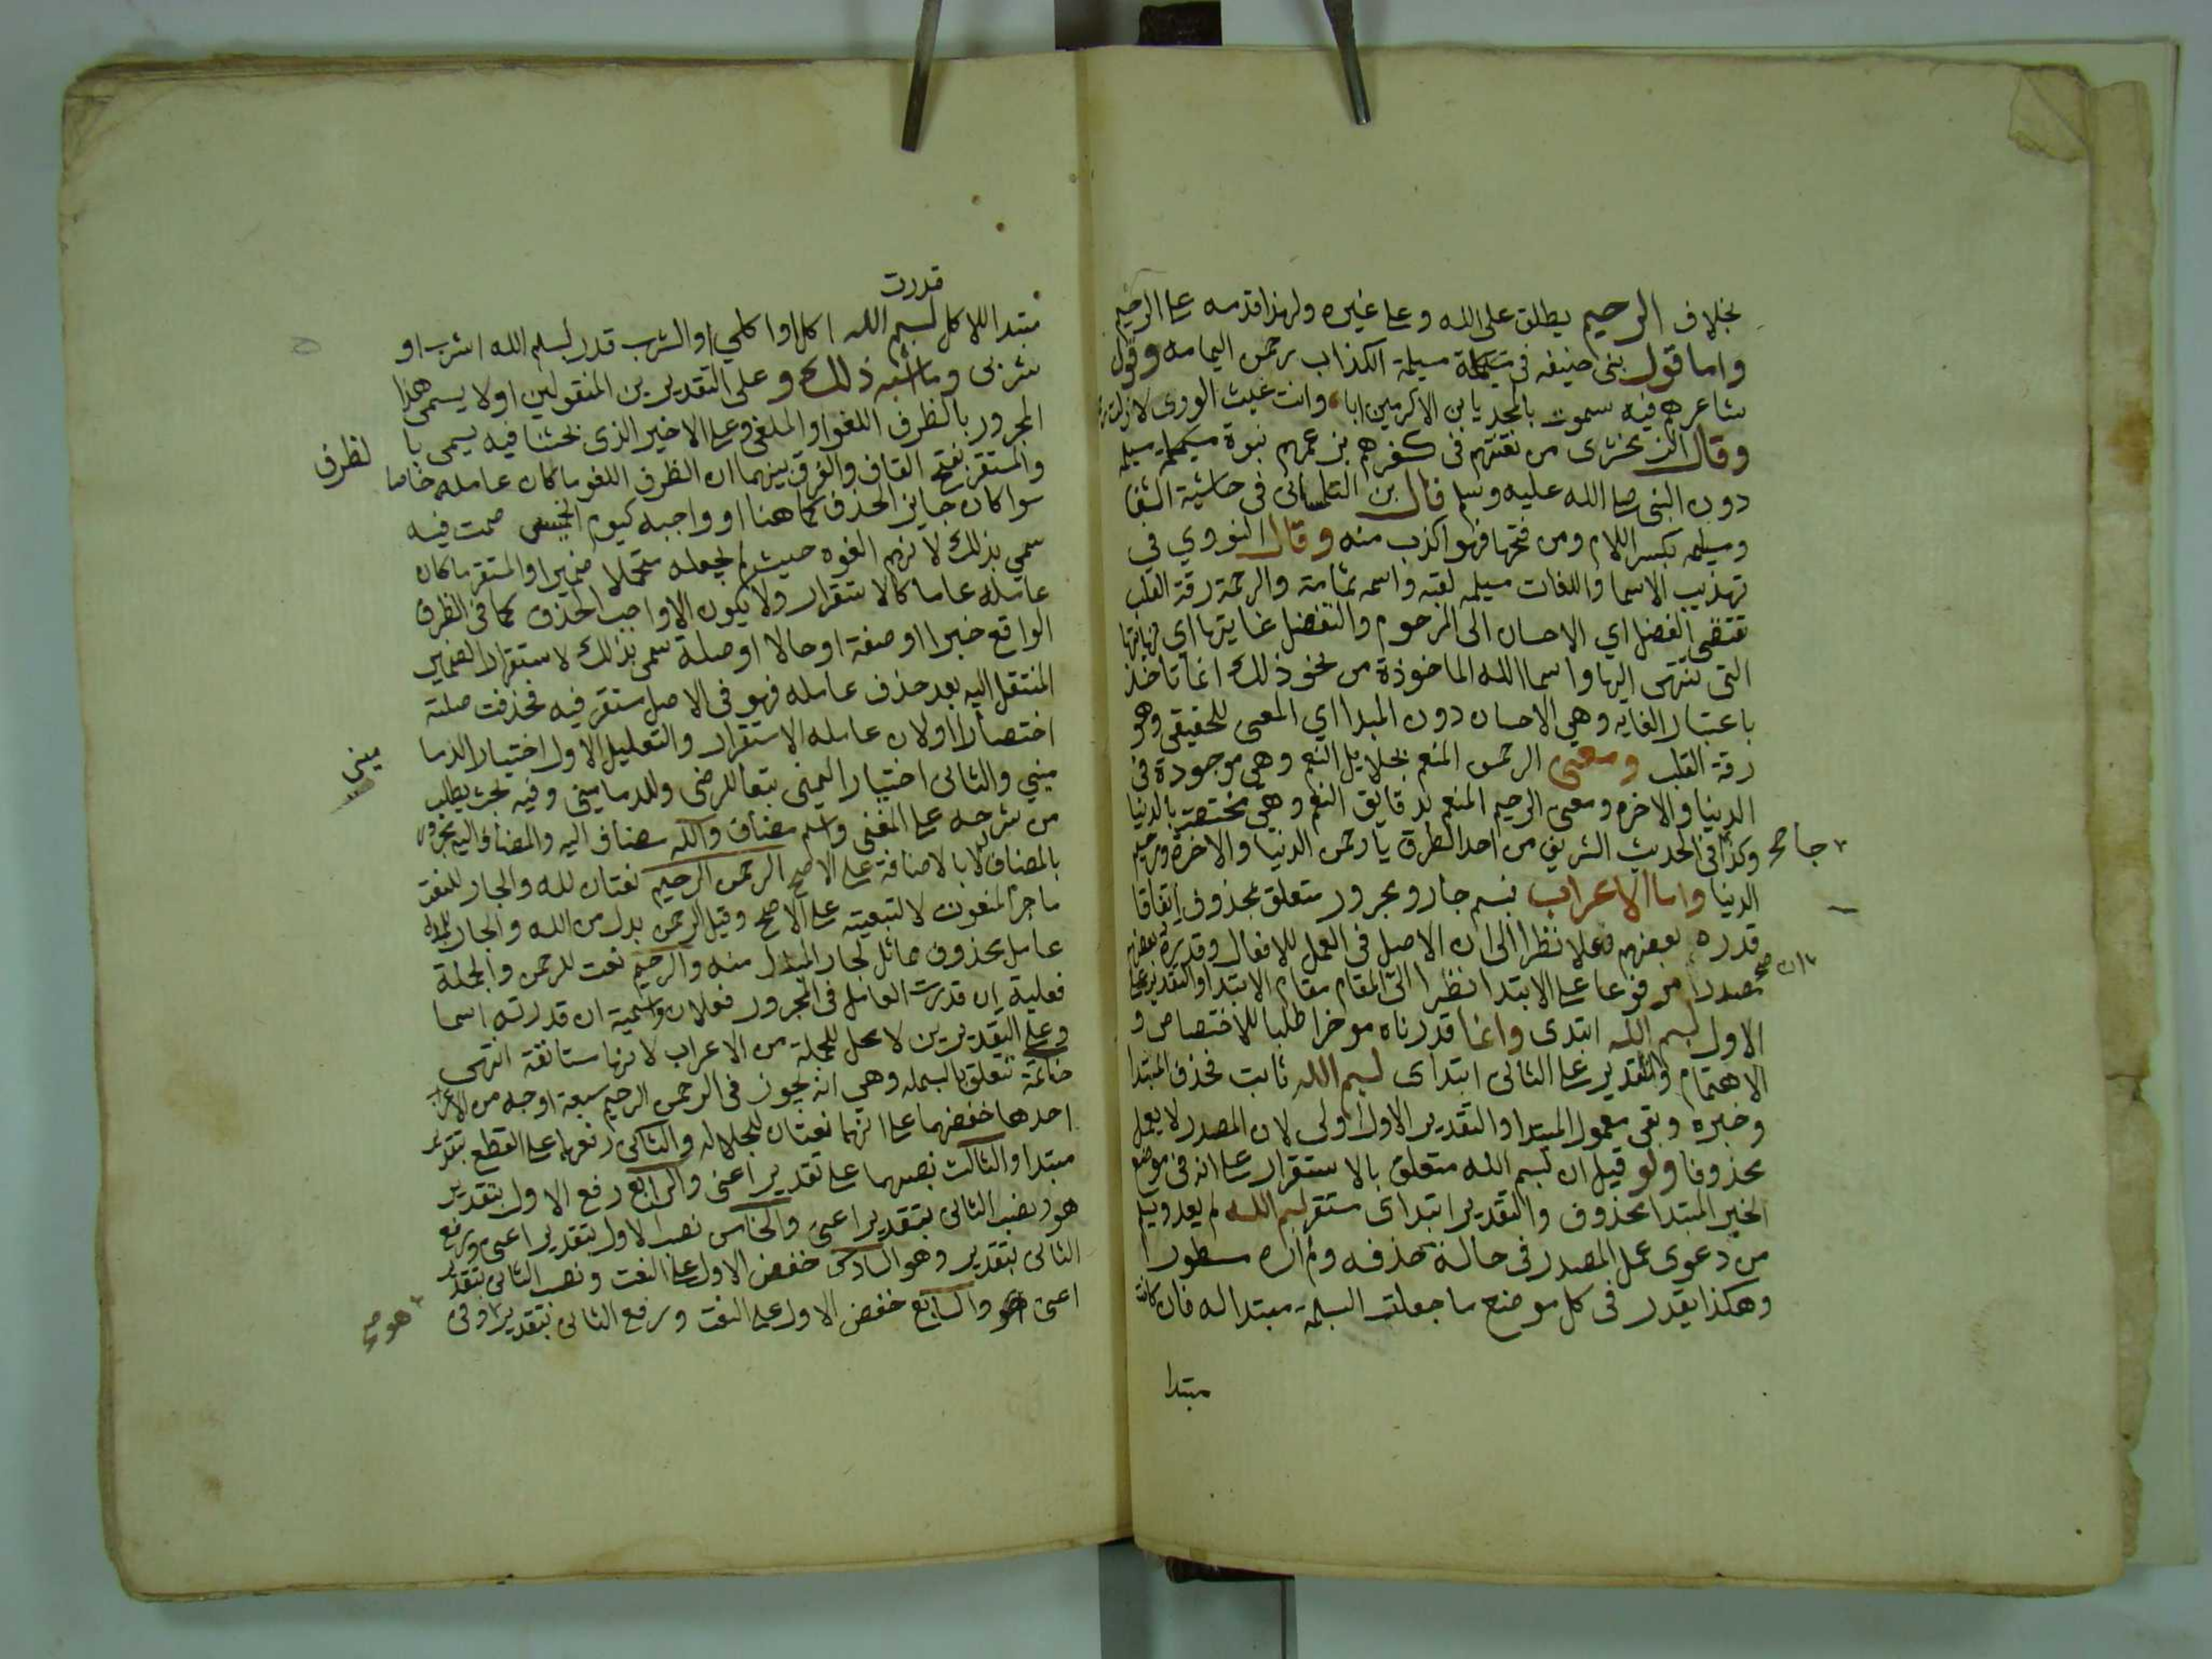 بخلاف الرحيم يطلق على الله وعلى غيره ولهذا قدمه على الرحيم
واما قول بنى حنيفه فى مسيلمة الكذاب رحمن اليمامه وقول
شاعرهم فيه سموت بالمجد يا بن الاكرمين ابا وانت غيث الورى لا زلت
وقال الزمخشرى من تعنتهم فى كفرهم بزعمهم نبوة مسيلمة
دون النبى صلى الله عليه وسلم قال بن التلمسانى فى حاشية الشفا
ومسيلمه بكسر اللام ومن فتحها فهو اكذب منه وقال النووي في
تهذيب الاسما واللغات مسيلمه لقبه واسمه ثمامة والرحمة رقة القلب
تقتضى الفضل اي الاحسان الى المرحوم والتفضل غايتها اي نهايتها
التى تنتهى اليها واسما الله الماخوذة من نحو ذلك انما تاخذ
باعتبار الغايه وهي الاحسان دون المبدا اي المعنى الحقيقى وهو
رقة القلب ومعنى الرحمن المنعم بجلايل النعم وهى موجودة فى
الدنيا والاخره ومعنى الرحيم المنعم بدقايق النعم وهى مختصة بالدنيا
وكذا فى الحديث الشريف من احد الطرق يا رحمن الدنيا والاخرة ورحيم
جا صح
الدنيا واما الاعراب بسم جار ومجرور متعلق بمحذوف اتفاقا
قدره بعضهم فعلا نظرا الى ان الاصل فى العمل للافعال وقدره بعضهم
مصدرا مرفوعا على الابتدا نظرا الى المقام مقام الابتدا والتقدير على
ان صح
الاول بسم الله ابتدى وانما قدرناه موخرا طلبا للاختصاص و
الاهتمام والتقدير على الثانى ابتداى بسم الله ثابت فحذف المبتدا
وخبره وبقى معمول المبتدا والتقدير الاول اولى لان المصدر لا يعمل
محذوفا ولو قيل ان بسم الله متعلق بالاستقرار على انه فى موضع
الخبر المبتدا محذوف والتقدير ابتداى مستقر بسم الله لم يعد ويسلم
من دعوى عمل المصدر فى حالة حذفه ولم اره مسطورا
وهكذا يقدر فى كل موضع ما جعلت البسملة مبتدا له فان كانت
مبتدا
قدرت
مبتدا للاكل بسم الله اكل او اكلي او الشرب قدر بسم الله اشرب او
شربى وما اشبه ذلك وعلى التقديرين المنقولين اولا يسمى هذا
المجرور بالظرف اللغو او الملغى وعلى الاخير الذى بحثنا فيه يسمى با
لظرف
والمستقر بفتح القاف والفرق بينهما ان الظرف اللغو ما كان عامله خاصا
سوا كان جايز الحذف كما هنا او واجبه كيوم الخميس صمت فيه
سمي بذلك لانهم الغوه حيث لم يجعله متحملا ضميرا والمستقر ما كان
عامله عاما كالاستقرار ولا يكون الا واجب الحذف كما فى الظرف
الواقع خبرا او صفة او حالا او صلة سمى بذلك لاستقرار الضمير
المنتقل اليه بعد حذف عامله فهو فى الاصل مستقر فيه فحذفت صلته
اختصارا او لان عامله الاستقرار والتعليل الاول اختيار الدما
مينى
ميني والثانى اختيار اليمنى تبعا للرضى وللدمامينى وفيه بحث يطلب
من شرحه على المغنى واسم مضاف والله مضاف اليه والمضاف اليه مجرور
بالمضاف لا بالاضافة على الاصح الرحمن الرحيم نعتان لله والجار للنعت
ما جر المنعوت لا التبعية على الاصح وقيل الرحمن بدل من الله والجار للبدل
عامل محذوف مماثل لجار المبدل منه والرحيم نعت للرحمن والجملة
فعلية ان قدرت العامل فى المجرور فعلا واسمية ان قدرته اسما
وعلى التقديرين لا محل للجملة من الاعراب لانها مستانفة انتهى
خاتمة تتعلق بالبسمله وهي انه يجوز فى الرحمن الرحيم سبعة اوجه من الاعراب
احدها خفضهما على انهما نعتان للجلاله والثانى رفعهما على القطع بتقدير
مبتدا والثالث نصبهما على تقدير اعنى والرابع رفع الاول بتقدير
هو ونصب الثانى بتقدير اعنى والخامس نصب الاول بتقدير اعنى ورفع
الثانى بتقدير وهو السادس خفض الاول على النعت ونصب الثانى بتقدير
اعنى والسابع خفض الاول على النعت ورفع الثانى بتقدير وفى
هو صح